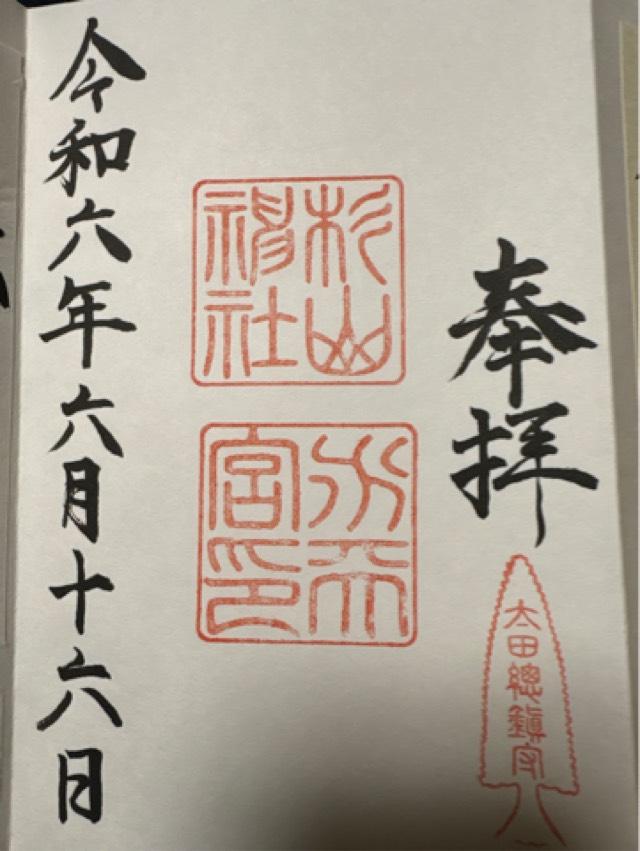 奉拝
太田總鎮守
杉山
神社
水天
宮印
令和六年六月十六日